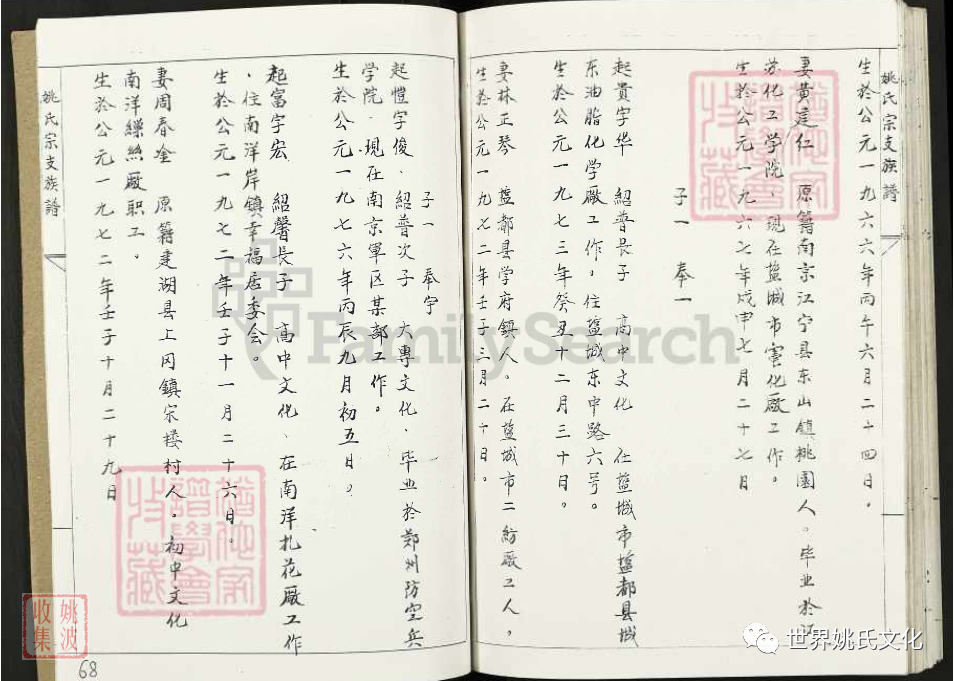 姚氏宗支族譜
生於公元一九六六年丙午六月二十四日。
妻黄廷仁 原籍南京江宁县东山镇桃園人。毕业於江
苏化工学院、现在盐城市電化厰工作。
生於公元一九六七年戊申七月二十七日
子一 奉一
起贵字华 紹普長子 高中文化 在盐城市盐都县城
东油脂化学厰工作。住盐城东中路六号。
生於公元一九七三年癸丑十二月三十日。
妻林正琴 盐都县学府鎮人。在盐城市二紡厰工人，
生於公元一九七二年壬子三月二十日。
子一 奉宇
起愷字俊、紹普次子 大專文化、毕业於郑州防空兵
学院、现在南京軍区某部工作。
生於公元一九七六年丙辰九月初五日。
起富字宏 紹馨長子 高中文化、在南洋扎花厰工作
、住南洋岸鎮幸福居委会。
生於公元一九七二年壬子十一月二十六日。
妻周春金 原籍建湖县上冈鎮宋楼村人。初中文化
南洋繅絲厰职工。
生於公元一九七二年壬子十月二十九日
姚氏宗支族譜
68
FamilySearch
姚波
收集
世界姚氏文化